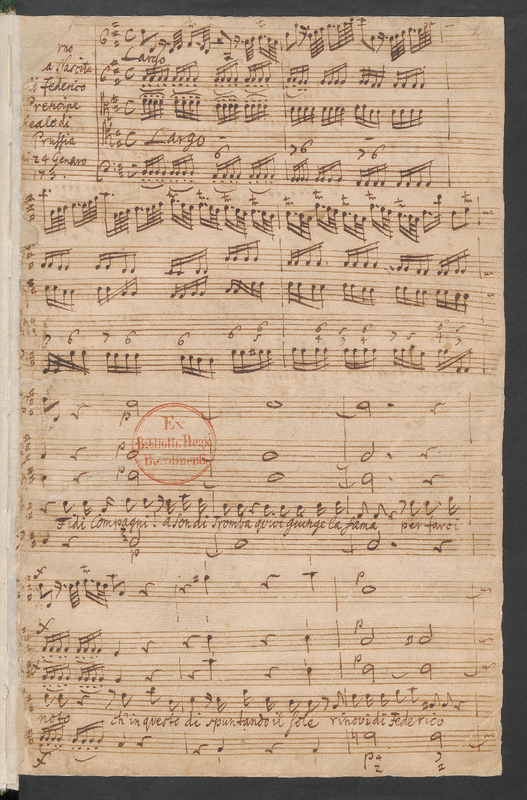 Largo
rno
a Nascita
i Federico
Prencipe
eale di
Prussia
24 Genaro
173.
Largo
Ex
Biblioth. Regia
Berolinensi.
Fidi Compagni. a son di Tromba qui giunge la fama per farci
noto ch'in questo di spuntando il sole rinovi di Federico